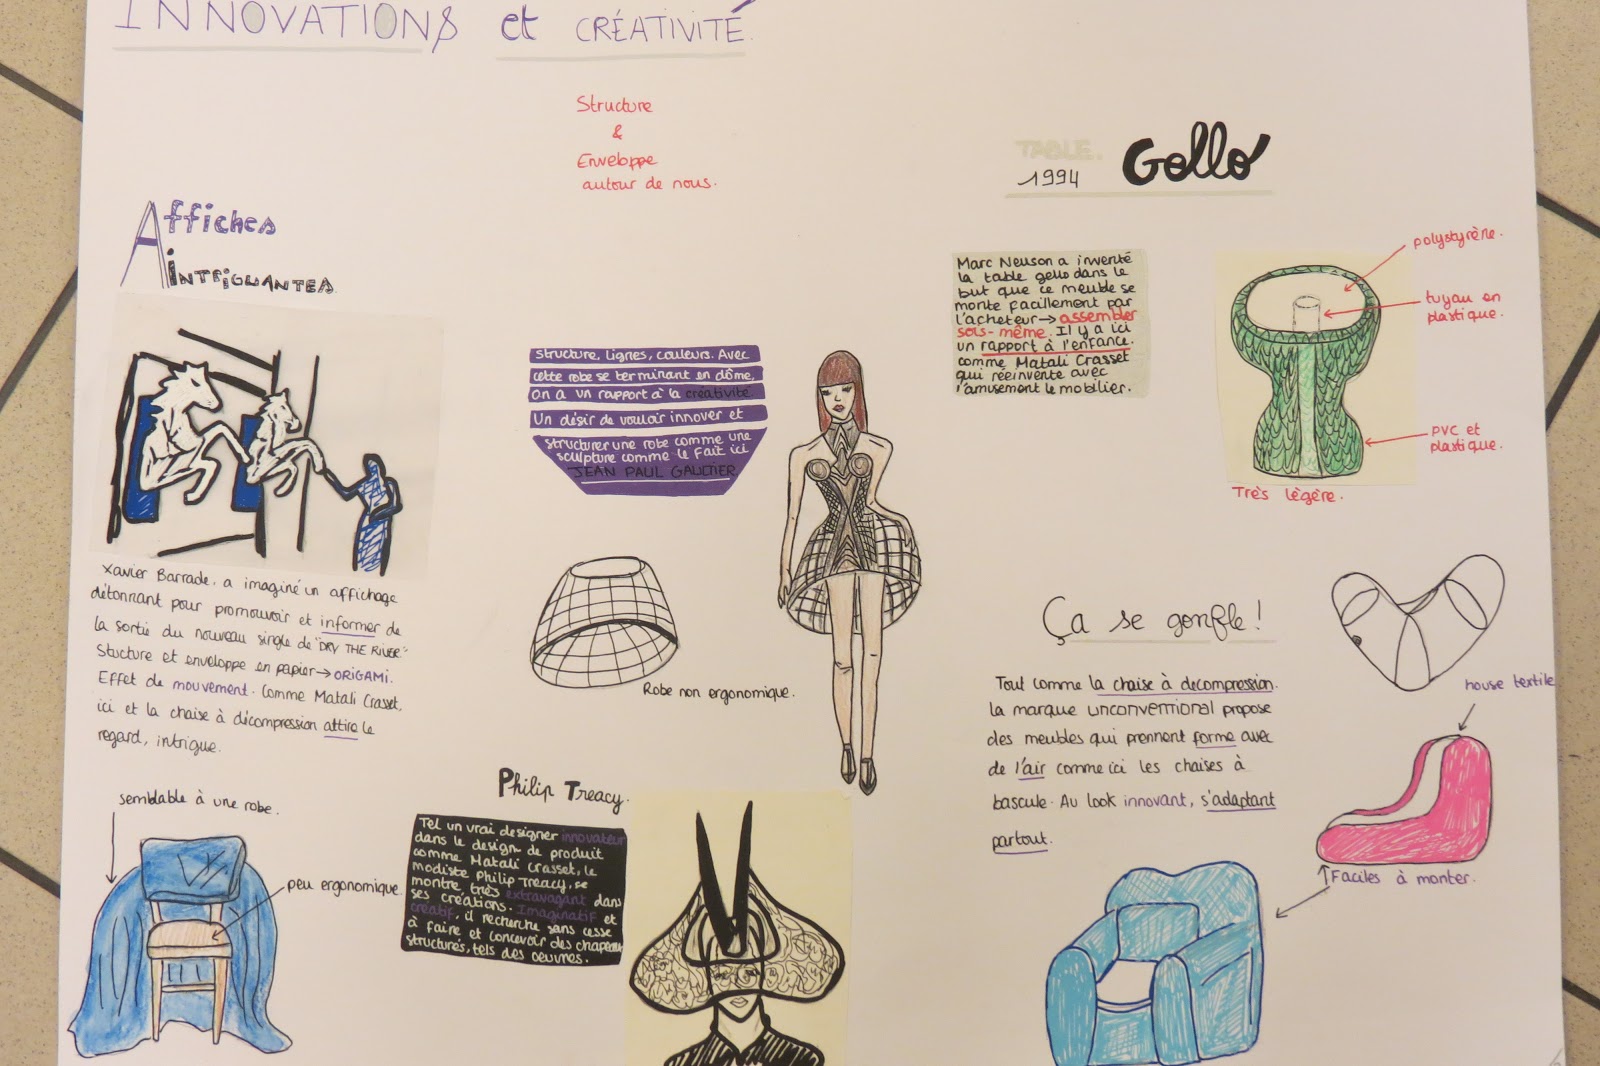 INNOVATIONS et CRÉATIVITÉ.
Structure
&
Enveloppe
autour de nous.
Affiches
INTRIGUANTES
Xavier Barrade, a imaginé un affichage
détonnant pour promouvoir et informer de
la sortie du nouveau single de "DRY THE RIVER".
Stucture et enveloppe en papier→ORIGAMI.
Effet de mouvement. Comme Matali Crasset,
ici et la chaise à décompression attire le
regard, intrigue.
semblable à une robe.
peu ergonomique.
structure, lignes, couleurs. Avec
cette robe se terminant en dôme,
on a un rapport à la créativité.
Un désir de vouloir innover et
structurer une robe comme une
sculpture comme le fait ici
JEAN PAUL GAULTIER
Robe non ergonomique.
Philip Treacy.
Tel un vrai designer innovateur
dans le design de produit
comme Matali Crasset, le
modiste Philip Treacy, se
montre très extravagant dans
ses créations. Imaginatif et
créatif, il recherche sans cesse
à faire et concevoir des chapeaux
structurés, tels des oeuvres.
TABLE.
1994
Gello
Marc Newson a inventé
la table gello dans le
but que ce meuble se
monte facillement par
l'acheteur→assembler
sois-même. Il y a ici
un rapport à l'enfance.
comme Matali Crasset
qui réeinvente avec
l'amusement le mobilier.
polystyrène.
tuyau en
plastique.
PVC et
plastique.
Très légère.
Ça se gonfle!
Tout comme la chaise à décompression.
la marque unconventional propose
des meubles qui prennent forme avec
de l'air comme ici les chaises à
bascule. Au look innovant, s'adaptant
partout.
house textile
Faciles à monter.